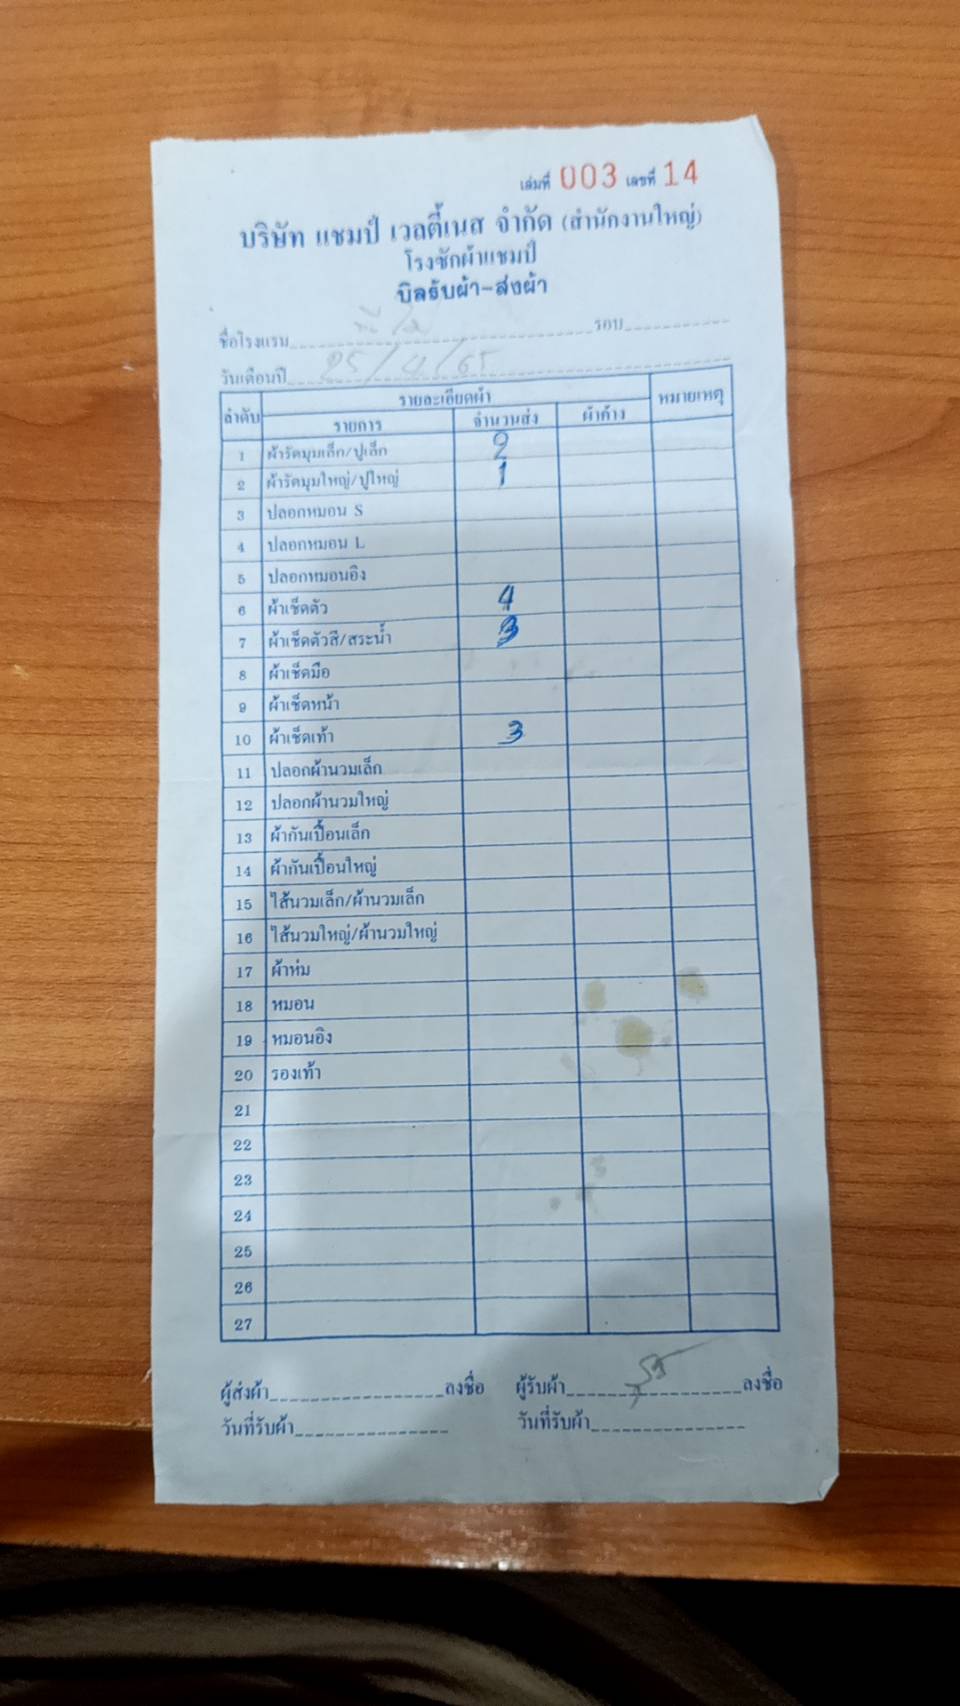 เล่มที่ 003 เลขที่ 14
บริษัท แชมป์ เวลตี้เนส จำกัด (สำนักงานใหญ่)
โรงซักผ้าแชมป์
บิลรับผ้า-ส่งผ้า
ชื่อโรงแรม รอบ
วันเดือนปี 25/4/65
ลำดับ รายละเอียดผ้า หมายเหตุ
รายการ จำนวนส่ง ผ้าค้าง
1 ผ้ารัดมุมเล็ก/ปูเล็ก 2
2 ผ้ารัดมุมใหญ่/ปูใหญ่ 1
3 ปลอกหมอน S
4 ปลอกหมอน L
5 ปลอกหมอนอิง
6 ผ้าเช็ดตัว 4
7 ผ้าเช็ดตัวสี/สระน้ำ 3
8 ผ้าเช็ดมือ
9 ผ้าเช็ดหน้า
10 ผ้าเช็ดเท้า 3
11 ปลอกผ้านวมเล็ก
12 ปลอกผ้านวมใหญ่
13 ผ้ากันเปื้อนเล็ก
14 ผ้ากันเปื้อนใหญ่
15 ไส้นวมเล็ก/ผ้านวมเล็ก
16 ไส้นวมใหญ่/ผ้านวมใหญ่
17 ผ้าห่ม
18 หมอน
19 หมอนอิง
20 รองเท้า
21
22
23
24
25
26
27
ผู้ส่งผ้า ลงชื่อ ผู้รับผ้า ลงชื่อ
วันที่รับผ้า วันที่รับผ้า